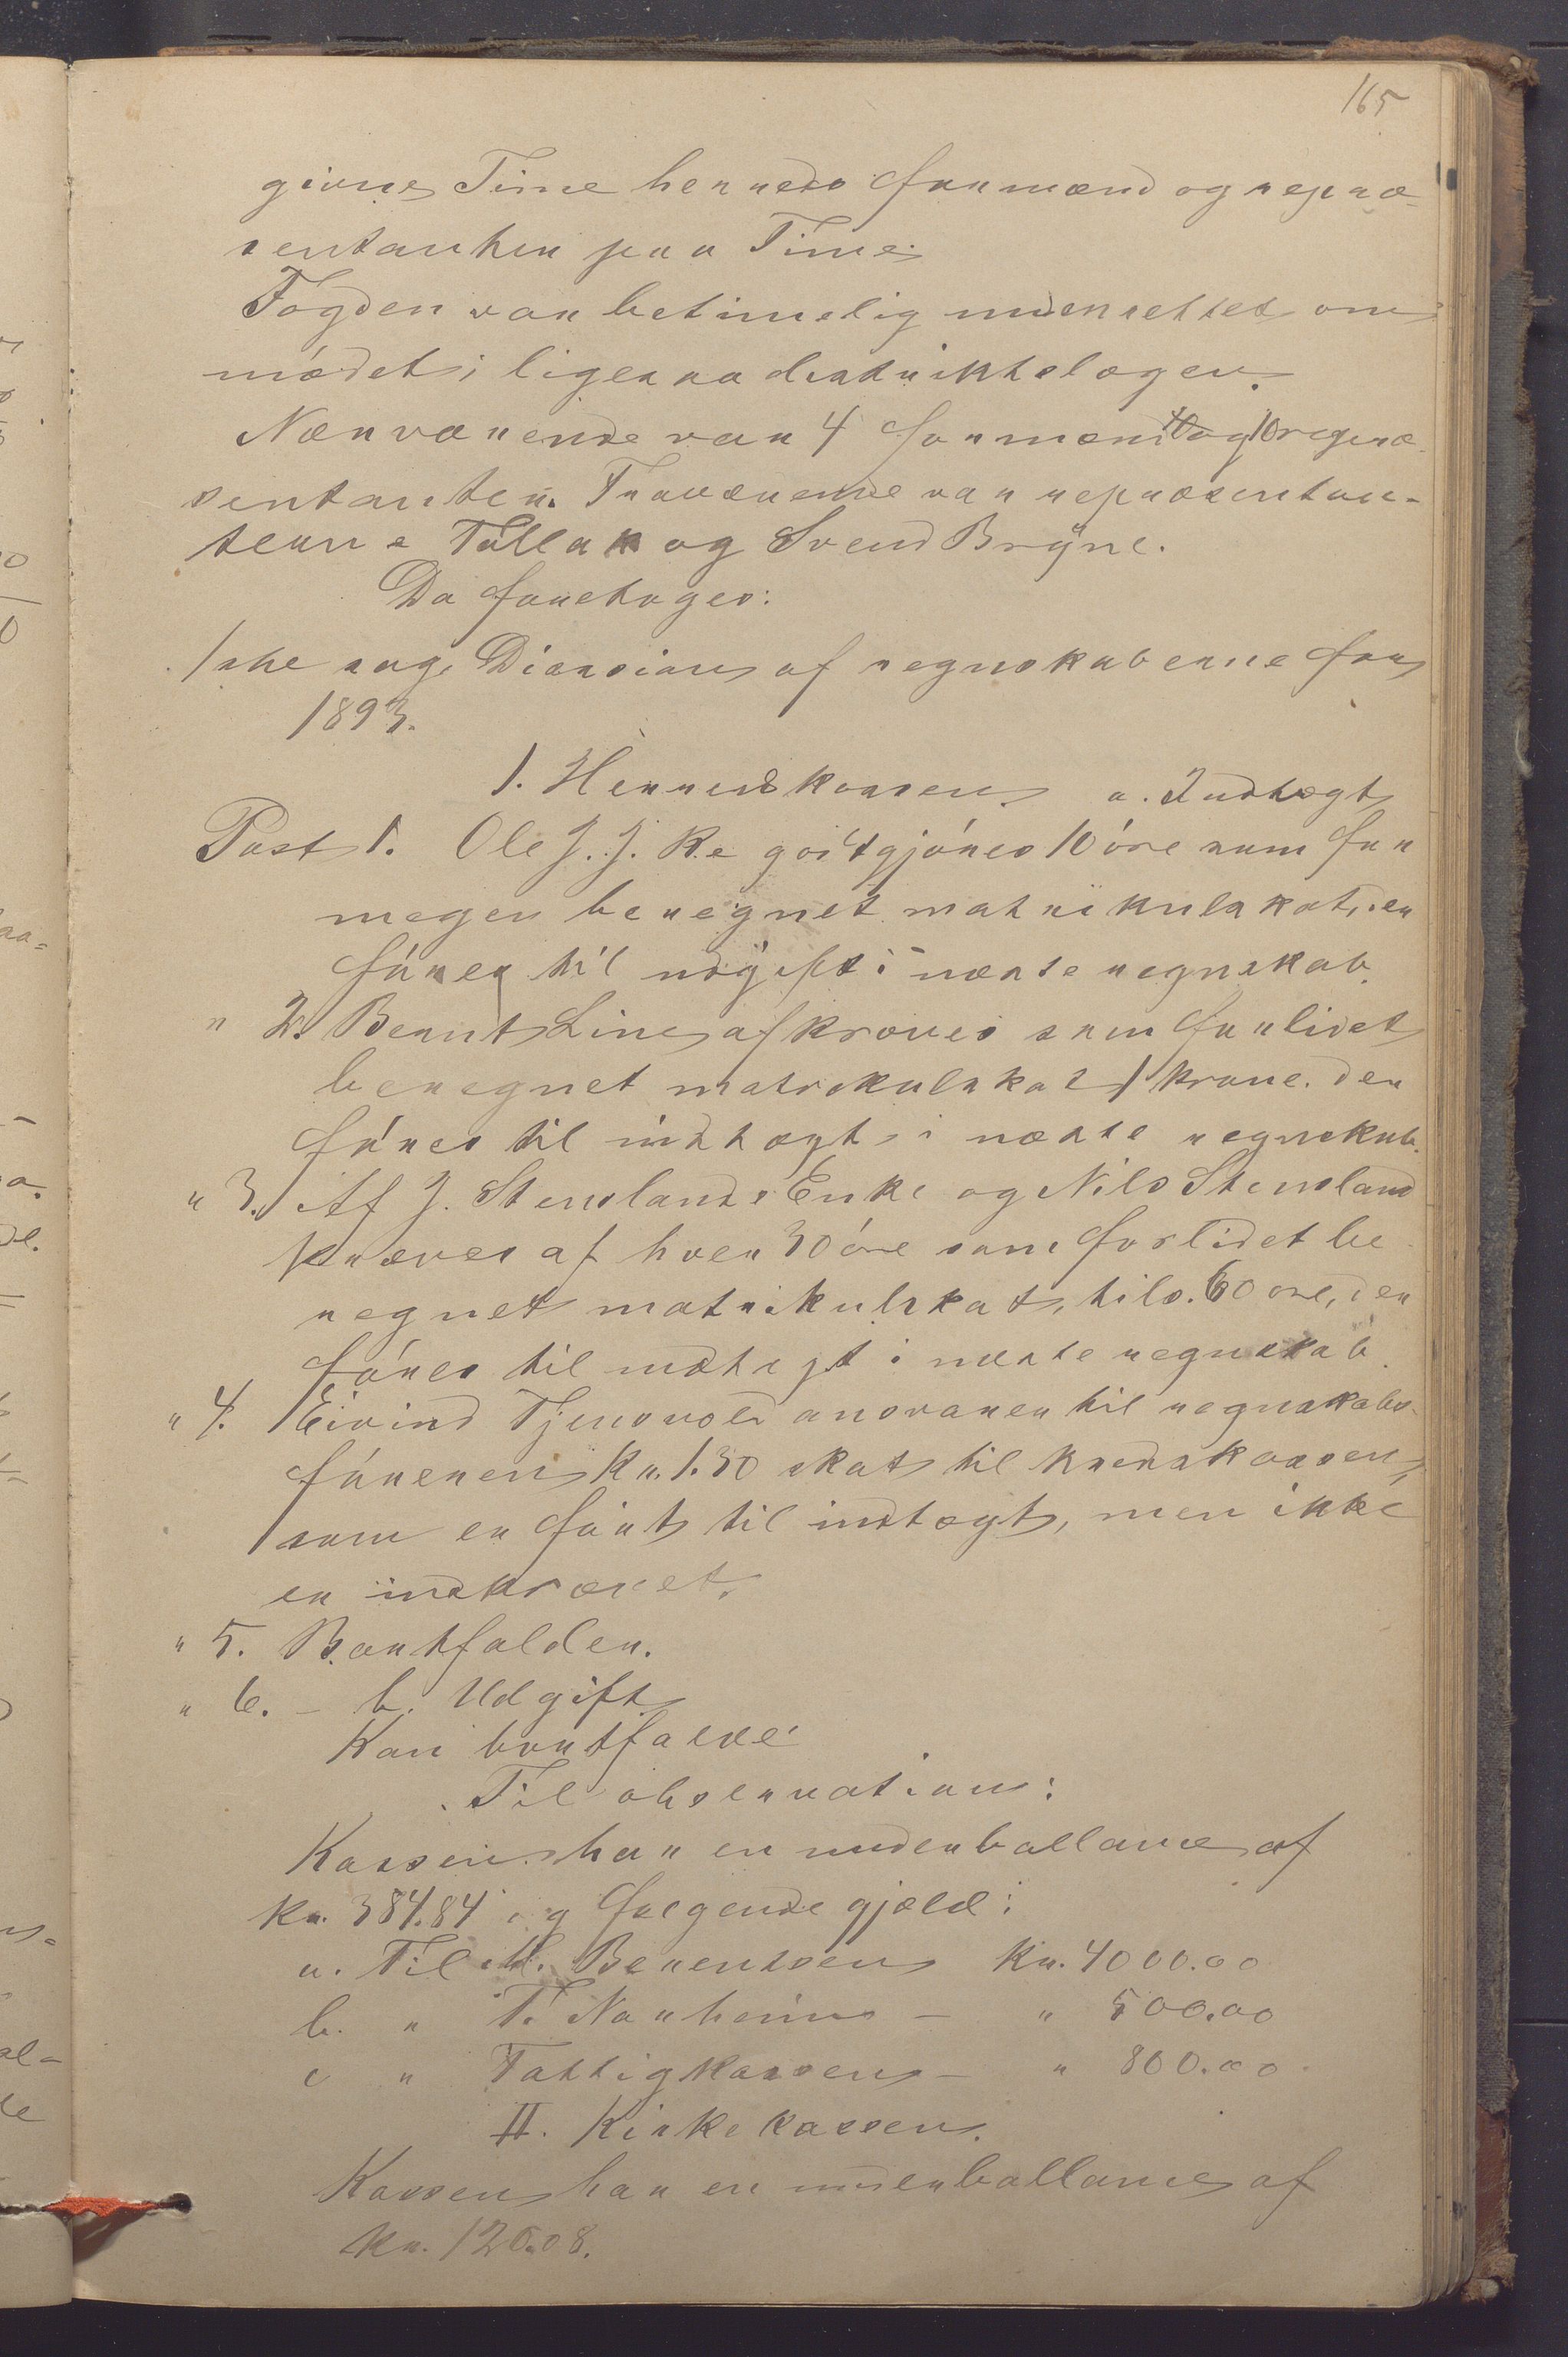 165
givne Time herreds formænd og repræ-
sentanter paa Time.
Fogden var betimelig underrettet om
mødet; ligesaa distriktslægen.
Nærværende var 4 formænd og 10 repræ-
sentanter. Fraværende var repræsentan-
terne Tollak og Svend Bryne.
Da foretoges:
1ste sag. Diesision af regnskaberne for
1893.
1. Herredskassen a. Indtægt
Post 1. Ole J. J. Re godtgjóres 10 óre som for
meget beregnet matrikulskat, der
fóres til udgift i næste regnskab.
" 2. Berent Line afkræves som for lidet
beregnet matrikulskat 1 krone. der
fóres til indtægt i næste regnskab.
" 3. Af J. Stenslands Enke og Nils Stensland
kræves af hver 30 óre som for lidet be
regnet matrikulskat, tils. 60 óre, der
fóres til indtægt i næste regnskab.
" 4. Eivind Tjensvold ansvarer til regnskabs-
fóreren Kr. 1.30 skat til kredskassen,
som er fórt til indtægt, men ikke
er indkrævet.
" 5. Bortfalder.
" 6. - b. Udgift
Kan bortfalde
Til observation:
Kassen har en underballance af
Kr. 384.84 og følgende gjæld:
a. Til M. Berentsen Kr. 4000.00
b. " T. Norheim - " 500.00
c " Fattigkassen - " 800.00
II. Kirkekassen.
Kassen har en underballance af
Kr. 120.08.